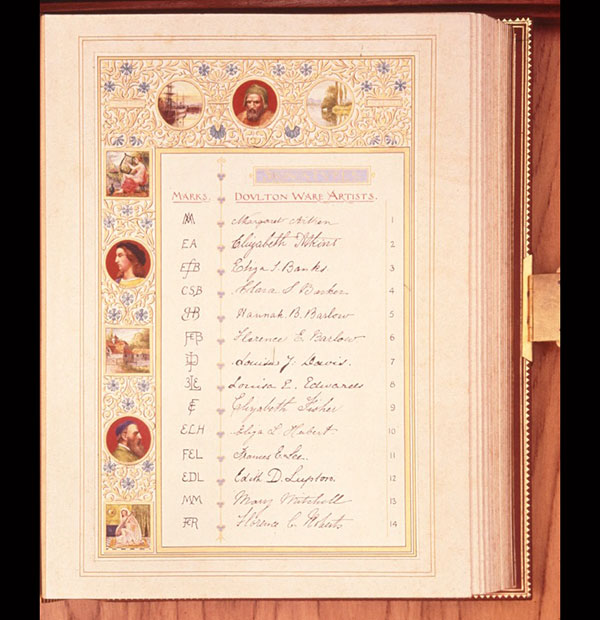 MARKS. DOVLTON WARE ARTISTS.
Margaret Aitken 1
EA Elizabeth Atkins 2
EJB Eliza J. Banks 3
CSB Clara S Barker 4
HBB Hannah B. Barlow 5
FEB Florence E. Barlow 6
Louisa J. Davis. 7
Louisa E. Edwards 8
EF Elizabeth Fisher 9
ELH Eliza L Hubert 10
FEL Frances E. Lee 11
EDL Edith D. Lupton. 12
MM Mary Mitchell 13
FCR Florence C. Roberts 14